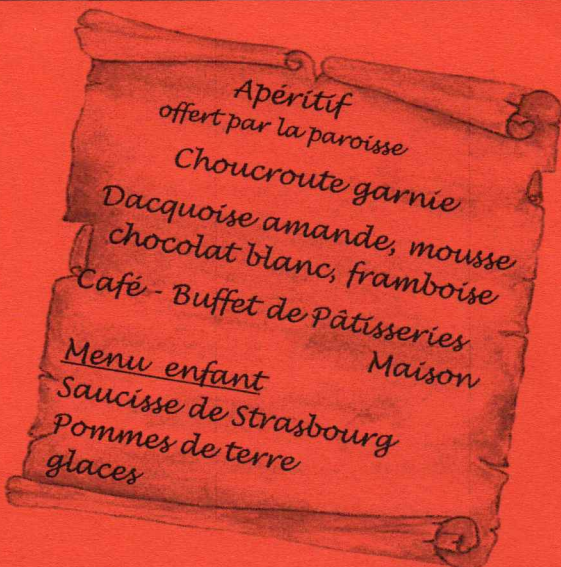 Apéritif
offert par la paroisse
Choucroute garnie
Dacquoise amande, mousse
chocolat blanc, framboise
Café - Buffet de Pâtisseries
Maison
Menu enfant
Saucisse de Strasbourg
Pommes de terre
glaces